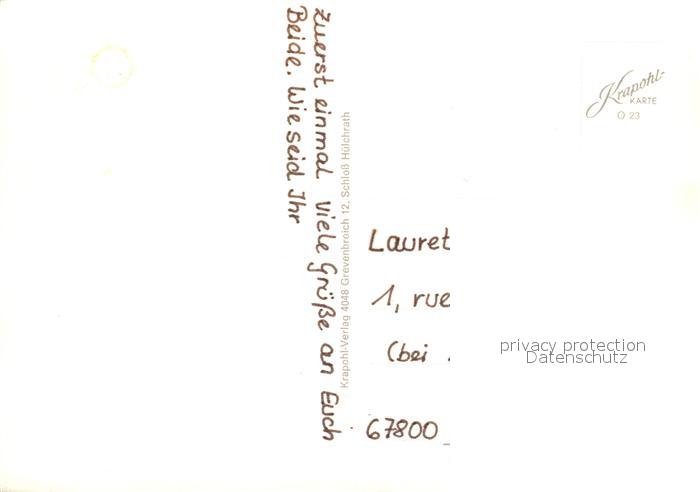 Zuerst einmal viele Grüße an Euch
Beide. Wie seid Ihr
Krapohl-Verlag 4048 Grevenbroich 12, Schloß Hülchrath
Krapohl-
KARTE
O 23
Lauret
1, rue
(bei
67800
privacy protection
Datenschutz